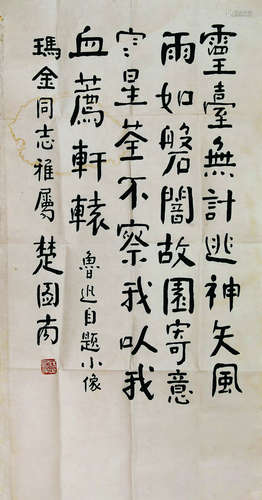 靈臺無計逃神矢風
雨如磐闇故園寄意
寒星荃不察我以我
血薦軒轅
魯迅自題小像
瑪金同志雅屬
楚圖南